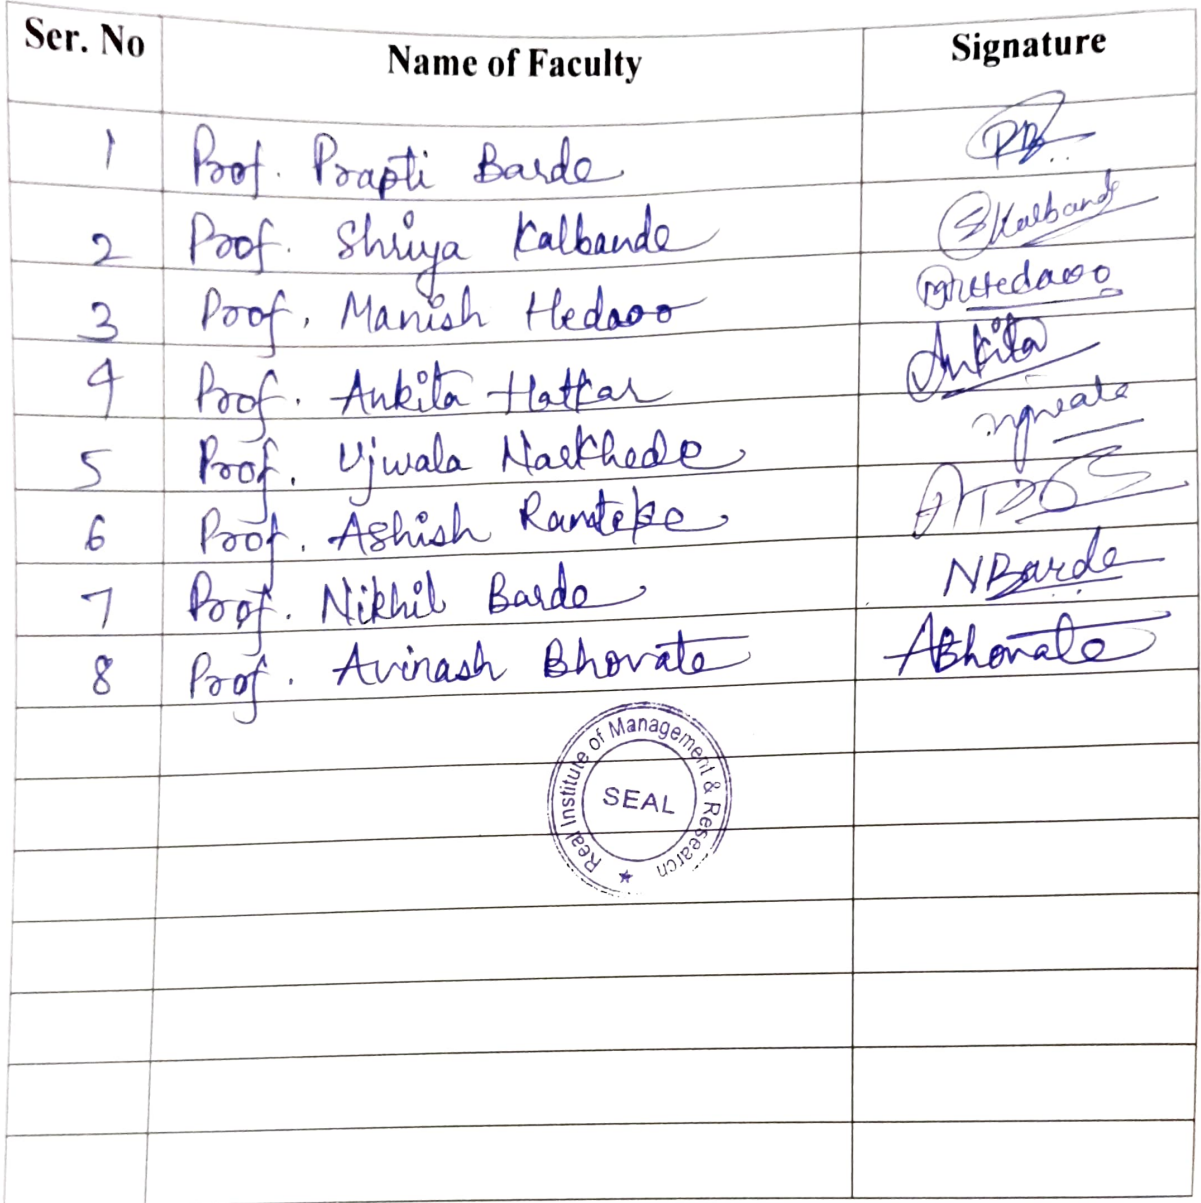 Ser. No Name of Faculty Signature
1 Prof. Prapti Barde
2 Prof. Shriya Kalbande SKalbande
3 Prof. Manish Hedaoo Hedaoo
4 Prof. Ankita Hatkar Ankita
5 Prof. Ujwala Narkhede
6 Prof. Ashish Ramteke
7 Prof. Nikhil Barde NBarde
8 Prof. Avinash Bhovate ABhovate
Real Institute of Management & Research
SEAL